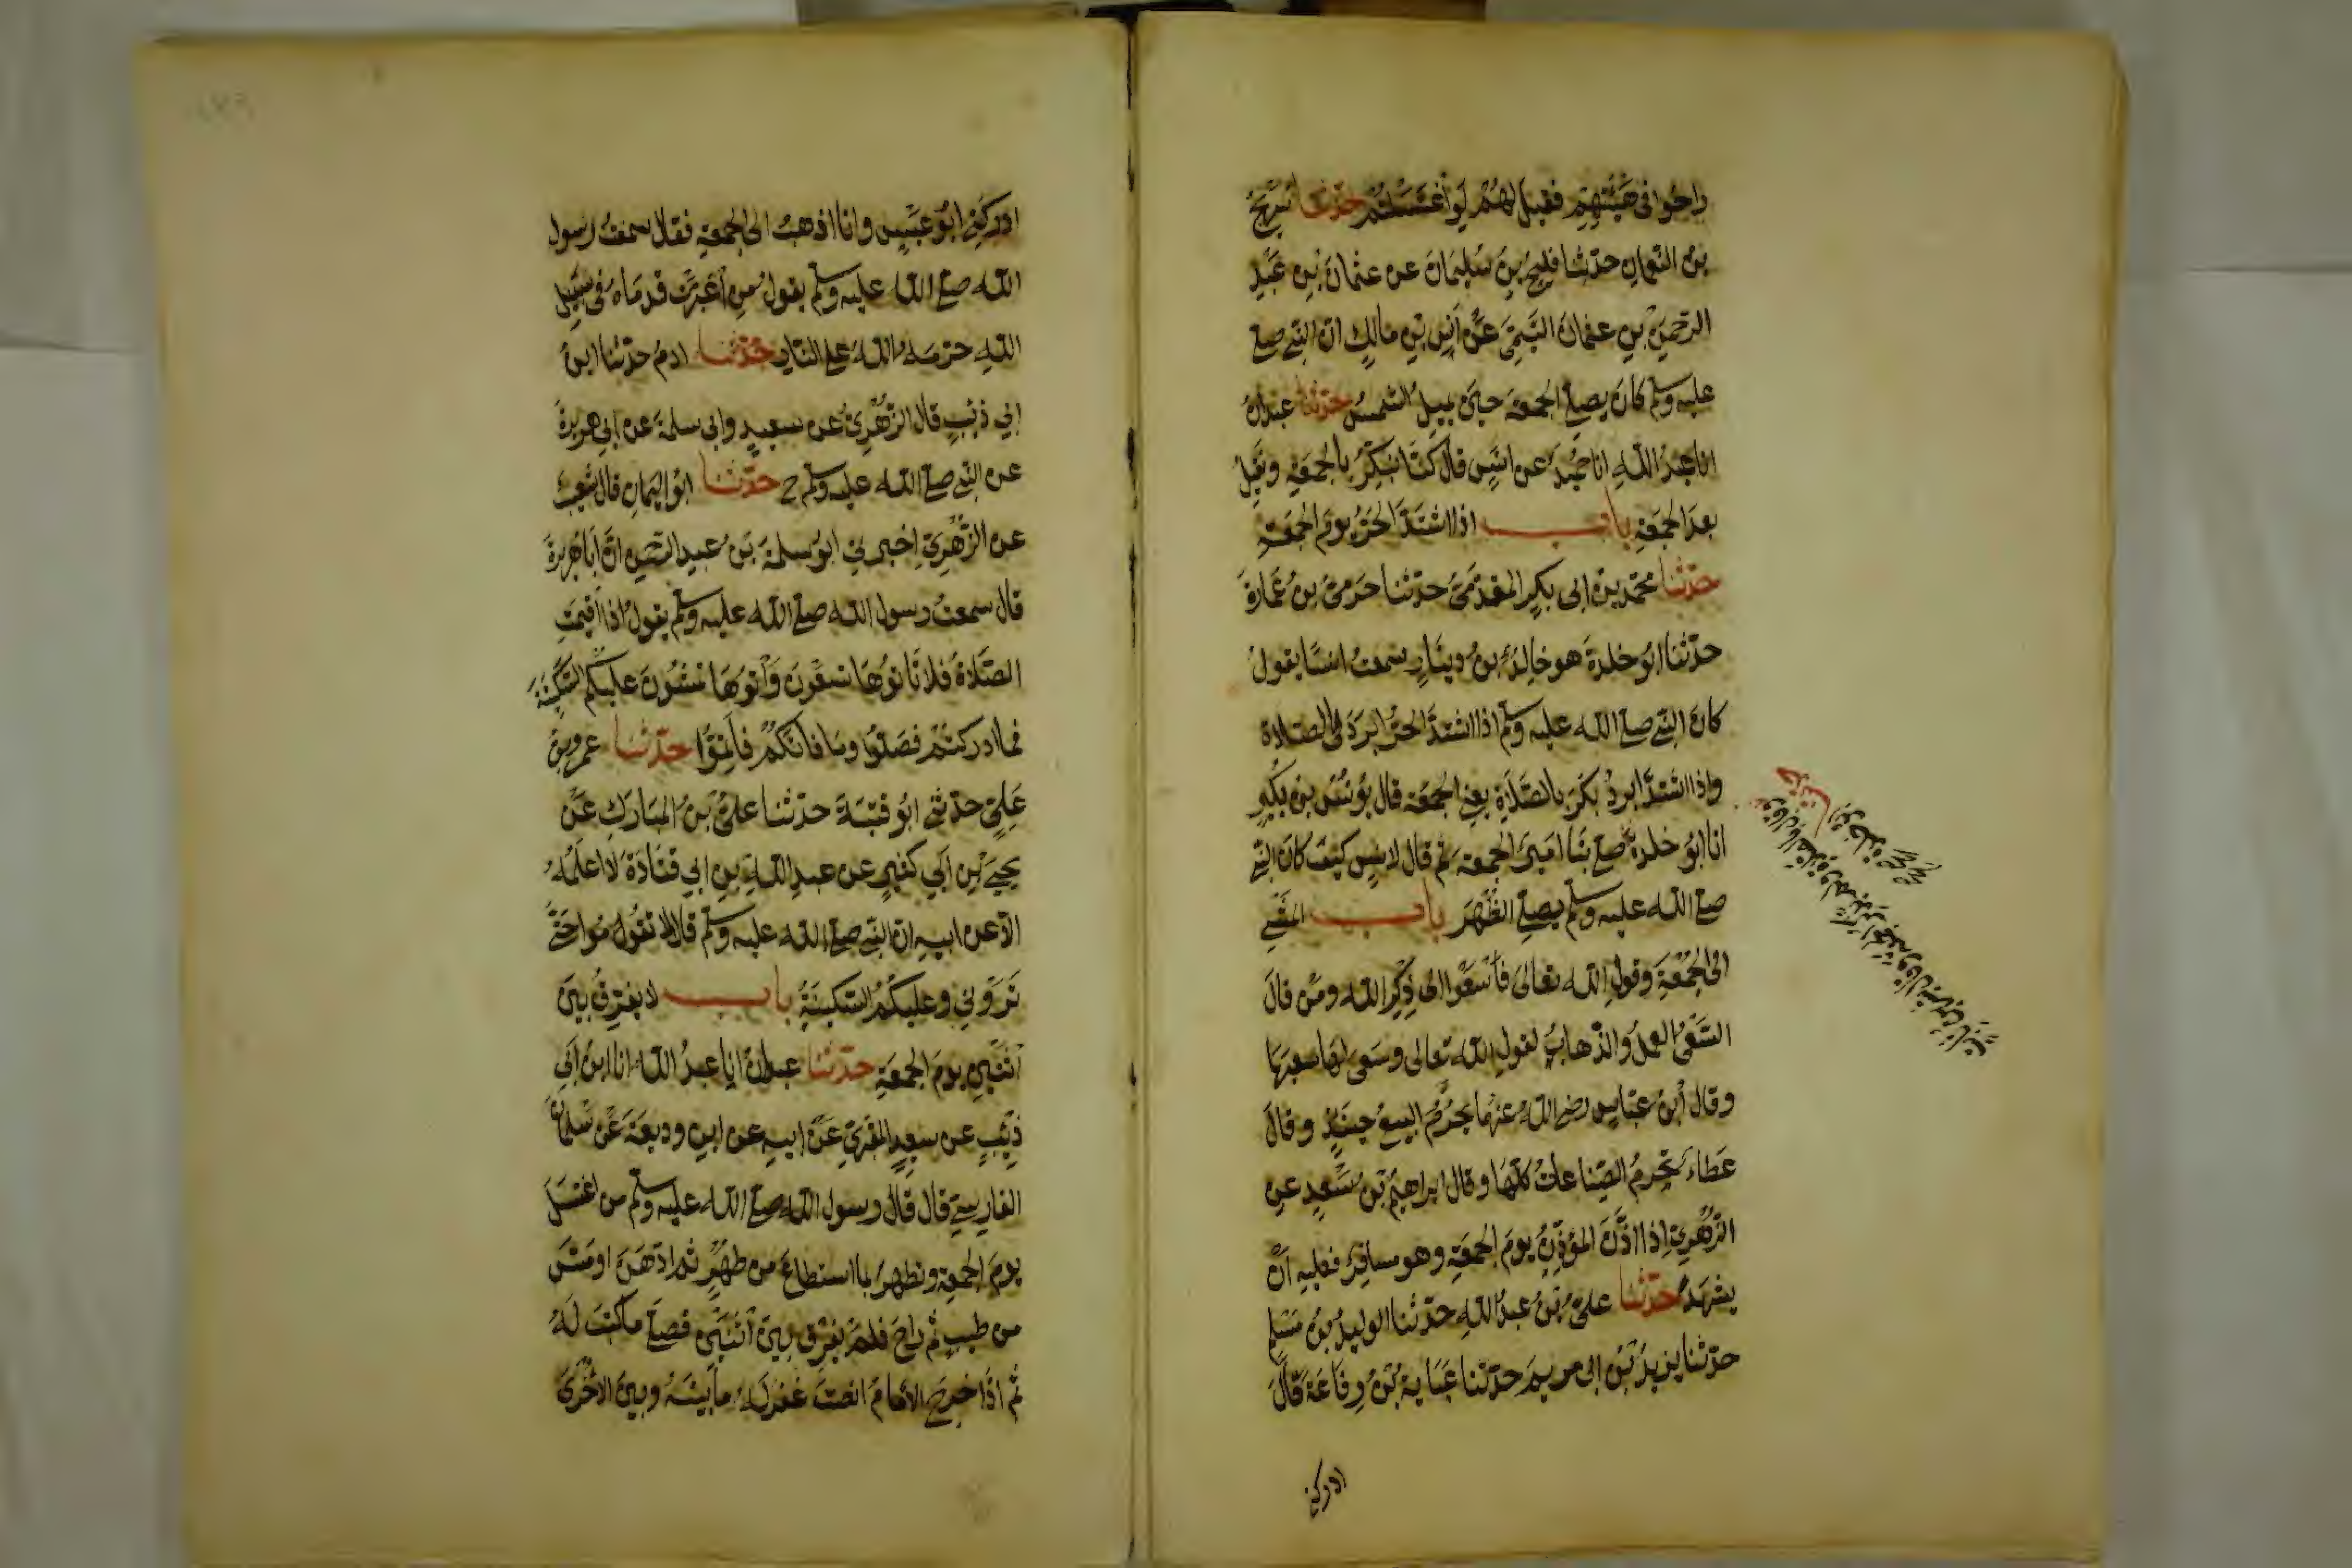 راحوا في هيئتهم فقيل لهم لو اغتسلتم حدثنا سريج
بن النعمان حدثنا فليح بن سليمان عن عثمان بن عبد
الرحمن بن عثمان التيمي عن انس بن مالك ان النبي صلى
عليه وسلم كان يصلي الجمعة حين تميل الشمس حدثنا عبدان
انا عبد الله انا حميد عن انس قال كنا نبكر بالجمعة ونقيل
بعد الجمعة باب اذا اشتد الحر يوم الجمعة
حدثنا محمد بن ابي بكر المقدمي حدثنا حرمي بن عمارة
حدثنا ابو خلدة هو خالد بن دينار سمعت انسا يقول
كان النبي صلى الله عليه وسلم اذا اشتد الحر ابرد في الصلاة
واذا اشتد ابرد بكر بالصلاة يعني الجمعة قال يونس بن بكير
انا ابو خلدة صلى بنا امير الجمعة ثم قال لانس كيف كان النبي
صلى الله عليه وسلم يصلي الظهر باب المشي
الى الجمعة وقول الله تعالى فاسعوا الى ذكر الله ومن قال
السعي العمل والذهاب لقول الله تعالى وسعى لها سعيها
وقال ابن عباس رضي الله عنهما يحرم البيع حينئذ وقال
عطاء تحرم الصناعات كلها وقال ابراهيم بن سعد عن
الزهري اذا اذن المؤذن يوم الجمعة وهو مسافر فعليه ان
يشهد حدثنا علي بن عبد الله حدثنا الوليد بن مسلم
حدثنا يزيد بن ابي مريم حدثنا عباية بن رفاعة قال
ادركني
ادركني ابو عبس وانا اذهب الى الجمعة فقال سمعت رسول
الله صلى الله عليه وسلم يقول من اغبرت قدماه في سبيل
الله حرمه الله على النار حدثنا ادم حدثنا ابن
ابي ذئب قال الزهري عن سعيد وابي سلمة عن ابي هريرة
عن النبي صلى الله عليه وسلم ح حدثنا ابو اليمان قال شعيب
عن الزهري اخبرني ابو سلمة بن عبد الرحمن ان ابا هريرة
قال سمعت رسول الله صلى الله عليه وسلم يقول اذا اقيمت
الصلاة فلا تاتوها تسعون واتوها تمشون عليكم السكينة
فما ادركتم فصلوا وما فاتكم فاتموا حدثنا عمرو بن
علي حدثني ابو قتيبة حدثنا علي بن المبارك عن
يحيى بن ابي كثير عن عبد الله بن ابي قتادة لا اعلمه
الا عن ابيه ان النبي صلى الله عليه وسلم قال لا تقوموا حتى
تروني وعليكم السكينة باب لا يفرق بين
اثنين يوم الجمعة حدثنا عبدان انا عبد الله انا ابن ابي
ذئب عن سعيد المقبري عن ابيه عن ابن وديعة عن سلمان
الفارسي قال قال رسول الله صلى الله عليه وسلم من اغتسل
يوم الجمعة وتطهر بما استطاع من طهر ثم ادهن او مس
من طيب ثم راح فلم يفرق بين اثنين فصلى ما كتب له
ثم اذا خرج الامام انصت غفر له ما بينه وبين الاخرى